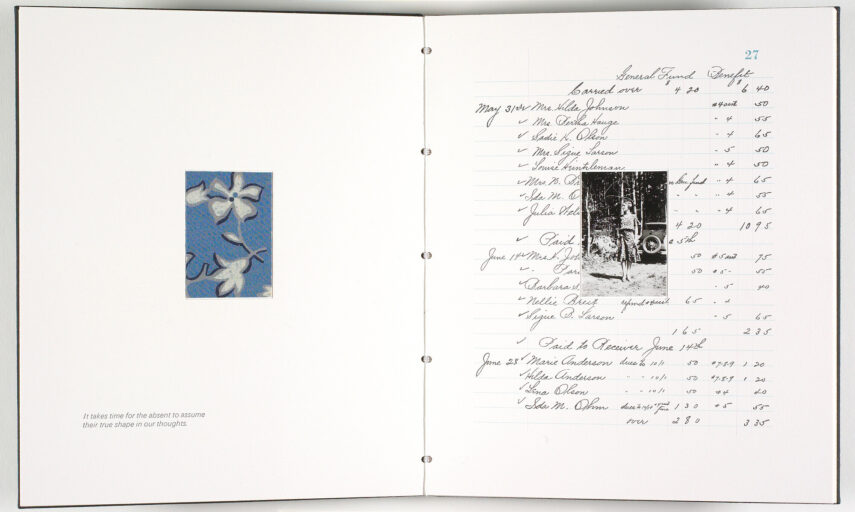 It takes time for the absent to assume
their true shape in our thoughts.
27
General Fund Benefit
Carried over $ 4 20 $ 6 40
May 31st ✓ Mrs. Hilda Johnson #4 asst 50
✓ Mrs Bertha Hauge " 4 55
✓ Sadie K. Olson " 4 65
✓ Mrs. Signe Larson " 5 50
✓ Louise Hinkleman " 4 50
✓ Mrs. B. " 4 65
✓ Ida M. O " " " 4 55
✓ Julia " " " 4 65
4 20 10 95
✓ Paid 5th
June 14th ✓ Mrs. K. Joh 50 #5 asst 75
✓ " 50 #5 " 55
✓ Barbara S. " 5 40
✓ Nellie Breit 65 " 4
✓ Signe B. Larson " 5 65
1 65 2 35
✓ Paid to Receiver June 14th
June 28 ✓ Marie Anderson dues to 10/1 50 #7-8-9 1 20
✓ Hilda Anderson " " 10/1 50 #7-8-9 1 20
✓ Lina Olson " " 10/1 50 #4 40
✓ Ida M. Ohm 1 30 #5 55
over 2 80 3 35